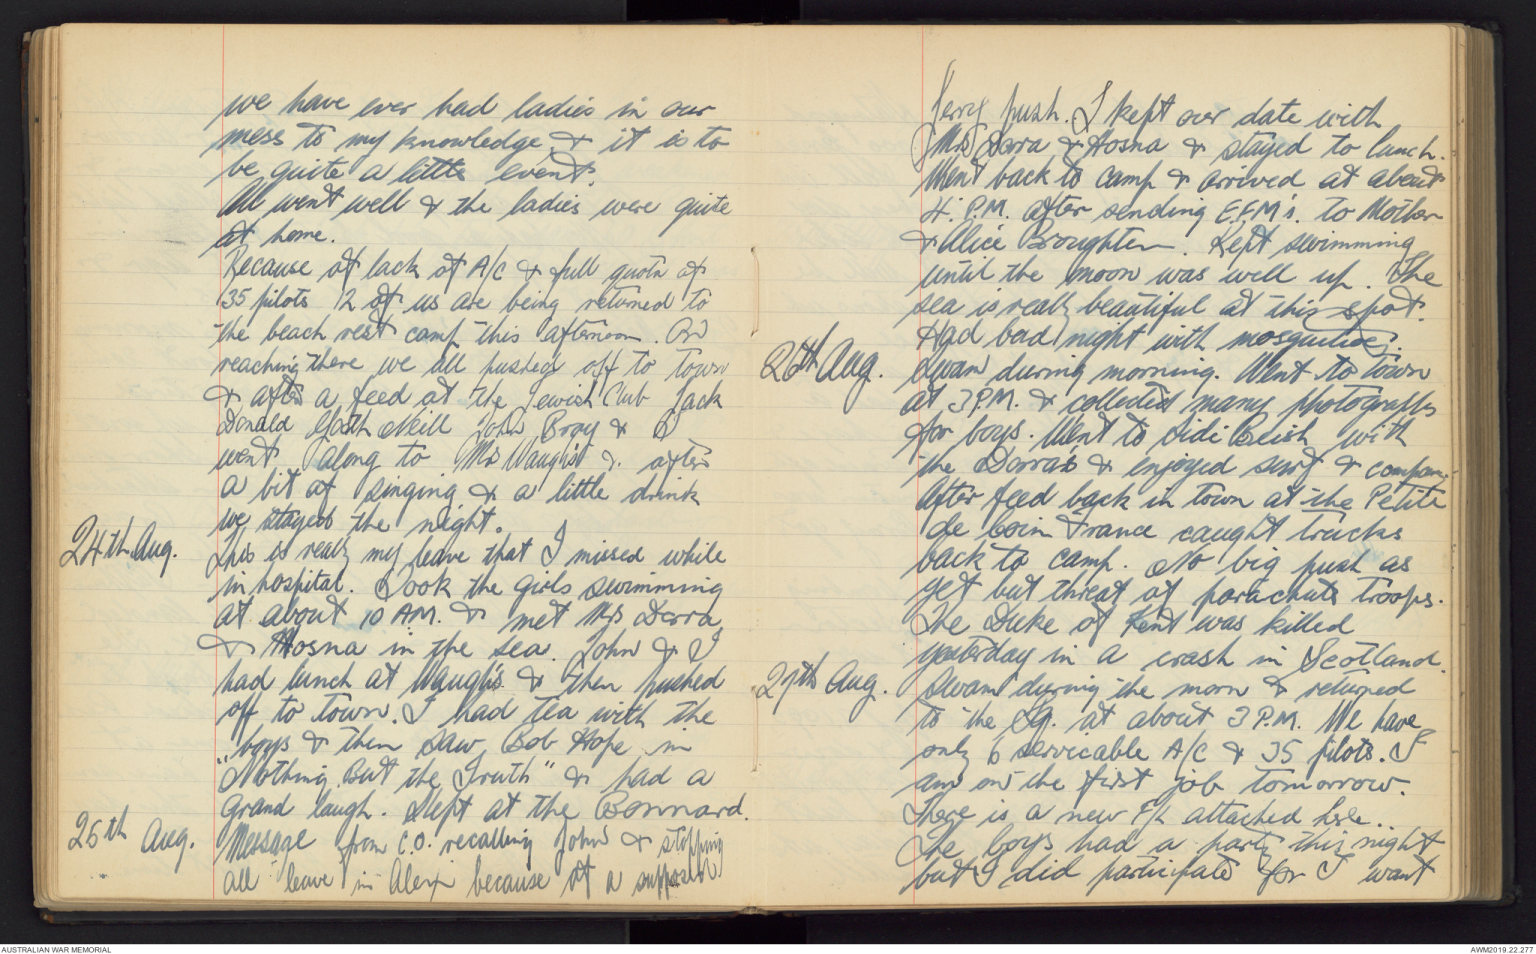 we have ever had ladies in our
mess to my knowledge, & it is to
be quite a little event.
All went well & the ladies were quite
at home.
Because of lack of A/C & full quota of
35 pilots 12 of us are being returned to
the beach rest camp this afternoon. On
reaching there we all pushed off to town
& after a feed at the Jewish Club Jack
Donald Garth Neill John Bray & I
went along to Mrs Waugh's & after
a bit of singing & a little drink
we stayed the night.
24th Aug. This is really my leave that I missed while
in hospital. Took the girls swimming
at about 10 A.M. & met Mrs Darra
& Hosna in the sea. John & I
had lunch at Waugh's & then pushed
off to town. I had tea with the
boys & then saw Bob Hope in
"Nothing But the Truth" & had a
grand laugh. Slept at the Bonnard.
25th Aug. Message from C.O. recalling John & stopping
all leave in Alex because of a supposed
Jerry push. I kept our date with
Mrs Darra & Hosna & stayed to lunch.
Went back to camp & arrived at about
4. P.M. after sending E.F.M's. to Mother
& Alice Broughten. Kept swimming
until the moon was well up. The
sea is really beautiful at this spot.
Had bad night with mosquitoes.
26th Aug. Swam during morning. Went to town
at 3 P.M. & collected many photographs
for boys. Went to Sidi Bish with
the Darra's & enjoyed surf & company.
After feed back in town at the Petite
de Coin France caught trucks
back to camp. No big push as
yet but threat of parachute troops.
The Duke of Kent was killed
yesterday in a crash in Scotland.
27th Aug. Swam during the morn & returned
to the Sq. at about 3 P.M. We have
only 6 servicable A/C & 35 pilots. I
am on the first job tomorrow.
There is a new F/L attached here.
The boys had a party this night
but I did participate for I want
AUSTRALIAN WAR MEMORIAL
AWM2019.22.277